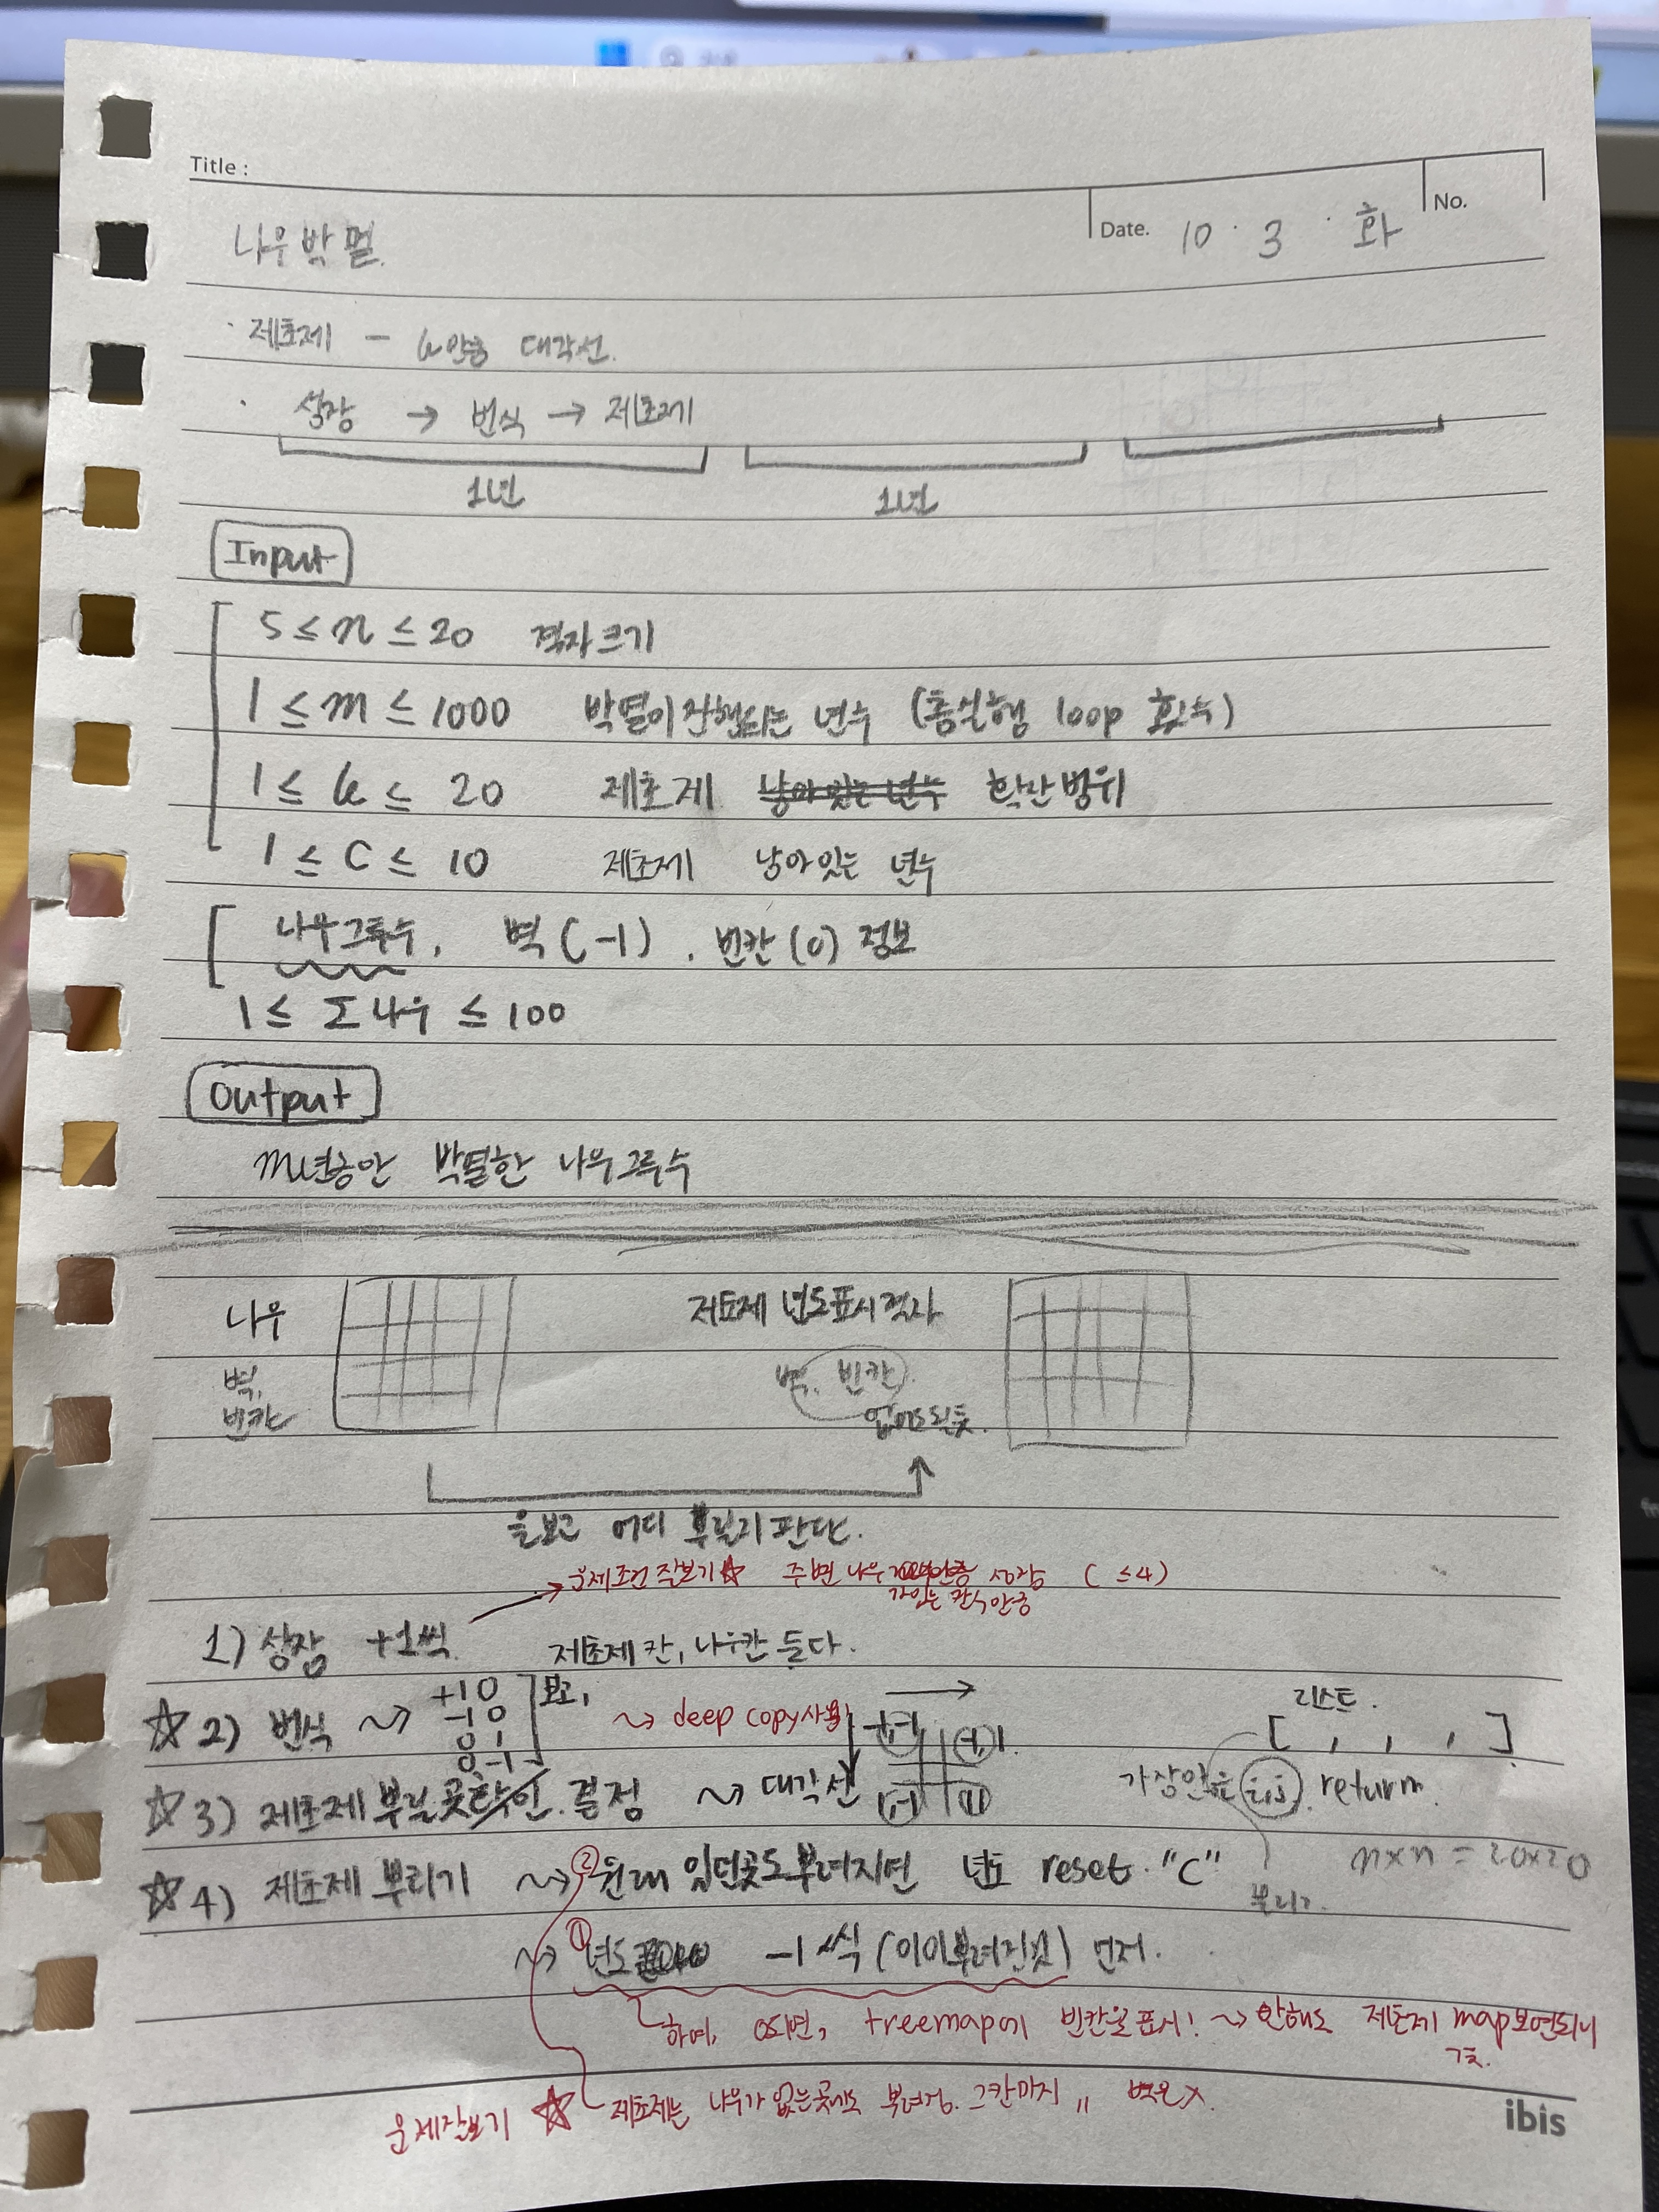 Title :
Date. 10 · 3 · 화
No.
나무박멸.
· 제초제 — k만큼 대각선.
· 성장 → 번식 → 제초제
1년 1년
Input
5 ≤ n ≤ 20 격자크기
1 ≤ m ≤ 1000 박멸이진행되는 년수 (총실행 loop 횟수)
1 ≤ k ≤ 20 제초제 남아있는 년수 확산범위
1 ≤ C ≤ 10 제초제 남아있는 년수
나무그루수, 벽(-1), 빈칸(0) 정보
1 ≤ Σ나무 ≤ 100
Output
m년동안 박멸한 나무그루수
나무 제초제 년도표시격자
벽, 벽, 빈칸
빈칸 없어도될듯.
을보고 어디 뿌릴지판단.
문제조건 잘보기☆ 주변 나무 성장 (≤4)
있는 칸수만큼
1) 성장 +1씩 제초제칸, 나무칸 둘다.
☆2) 번식 ↝ +1 0 보고, ↝ deep copy사용! →
-1 0
0 1
0 -1
리스트.
[ , , , ]
☆3) 제초제 뿌릴곳확인 결정 ↝ 대각선
가장앞을 (i,j) return.
☆4) 제초제 뿌리기 ↝ ② 원래 있던곳도뿌려지면 년도 reset "C"
n×n = 20×20
뿌리기.
↝ ① 년도 -1씩 (이미뿌려진것) 먼저.
하여, 0되면, treemap에 빈칸을표시! ↝ 안해도 제초제 map보면되니
문제잘보기 ☆ 제초제는 나무가 없는곳에도 뿌려짐. 그칸까지 〃 벽은X.
ibis